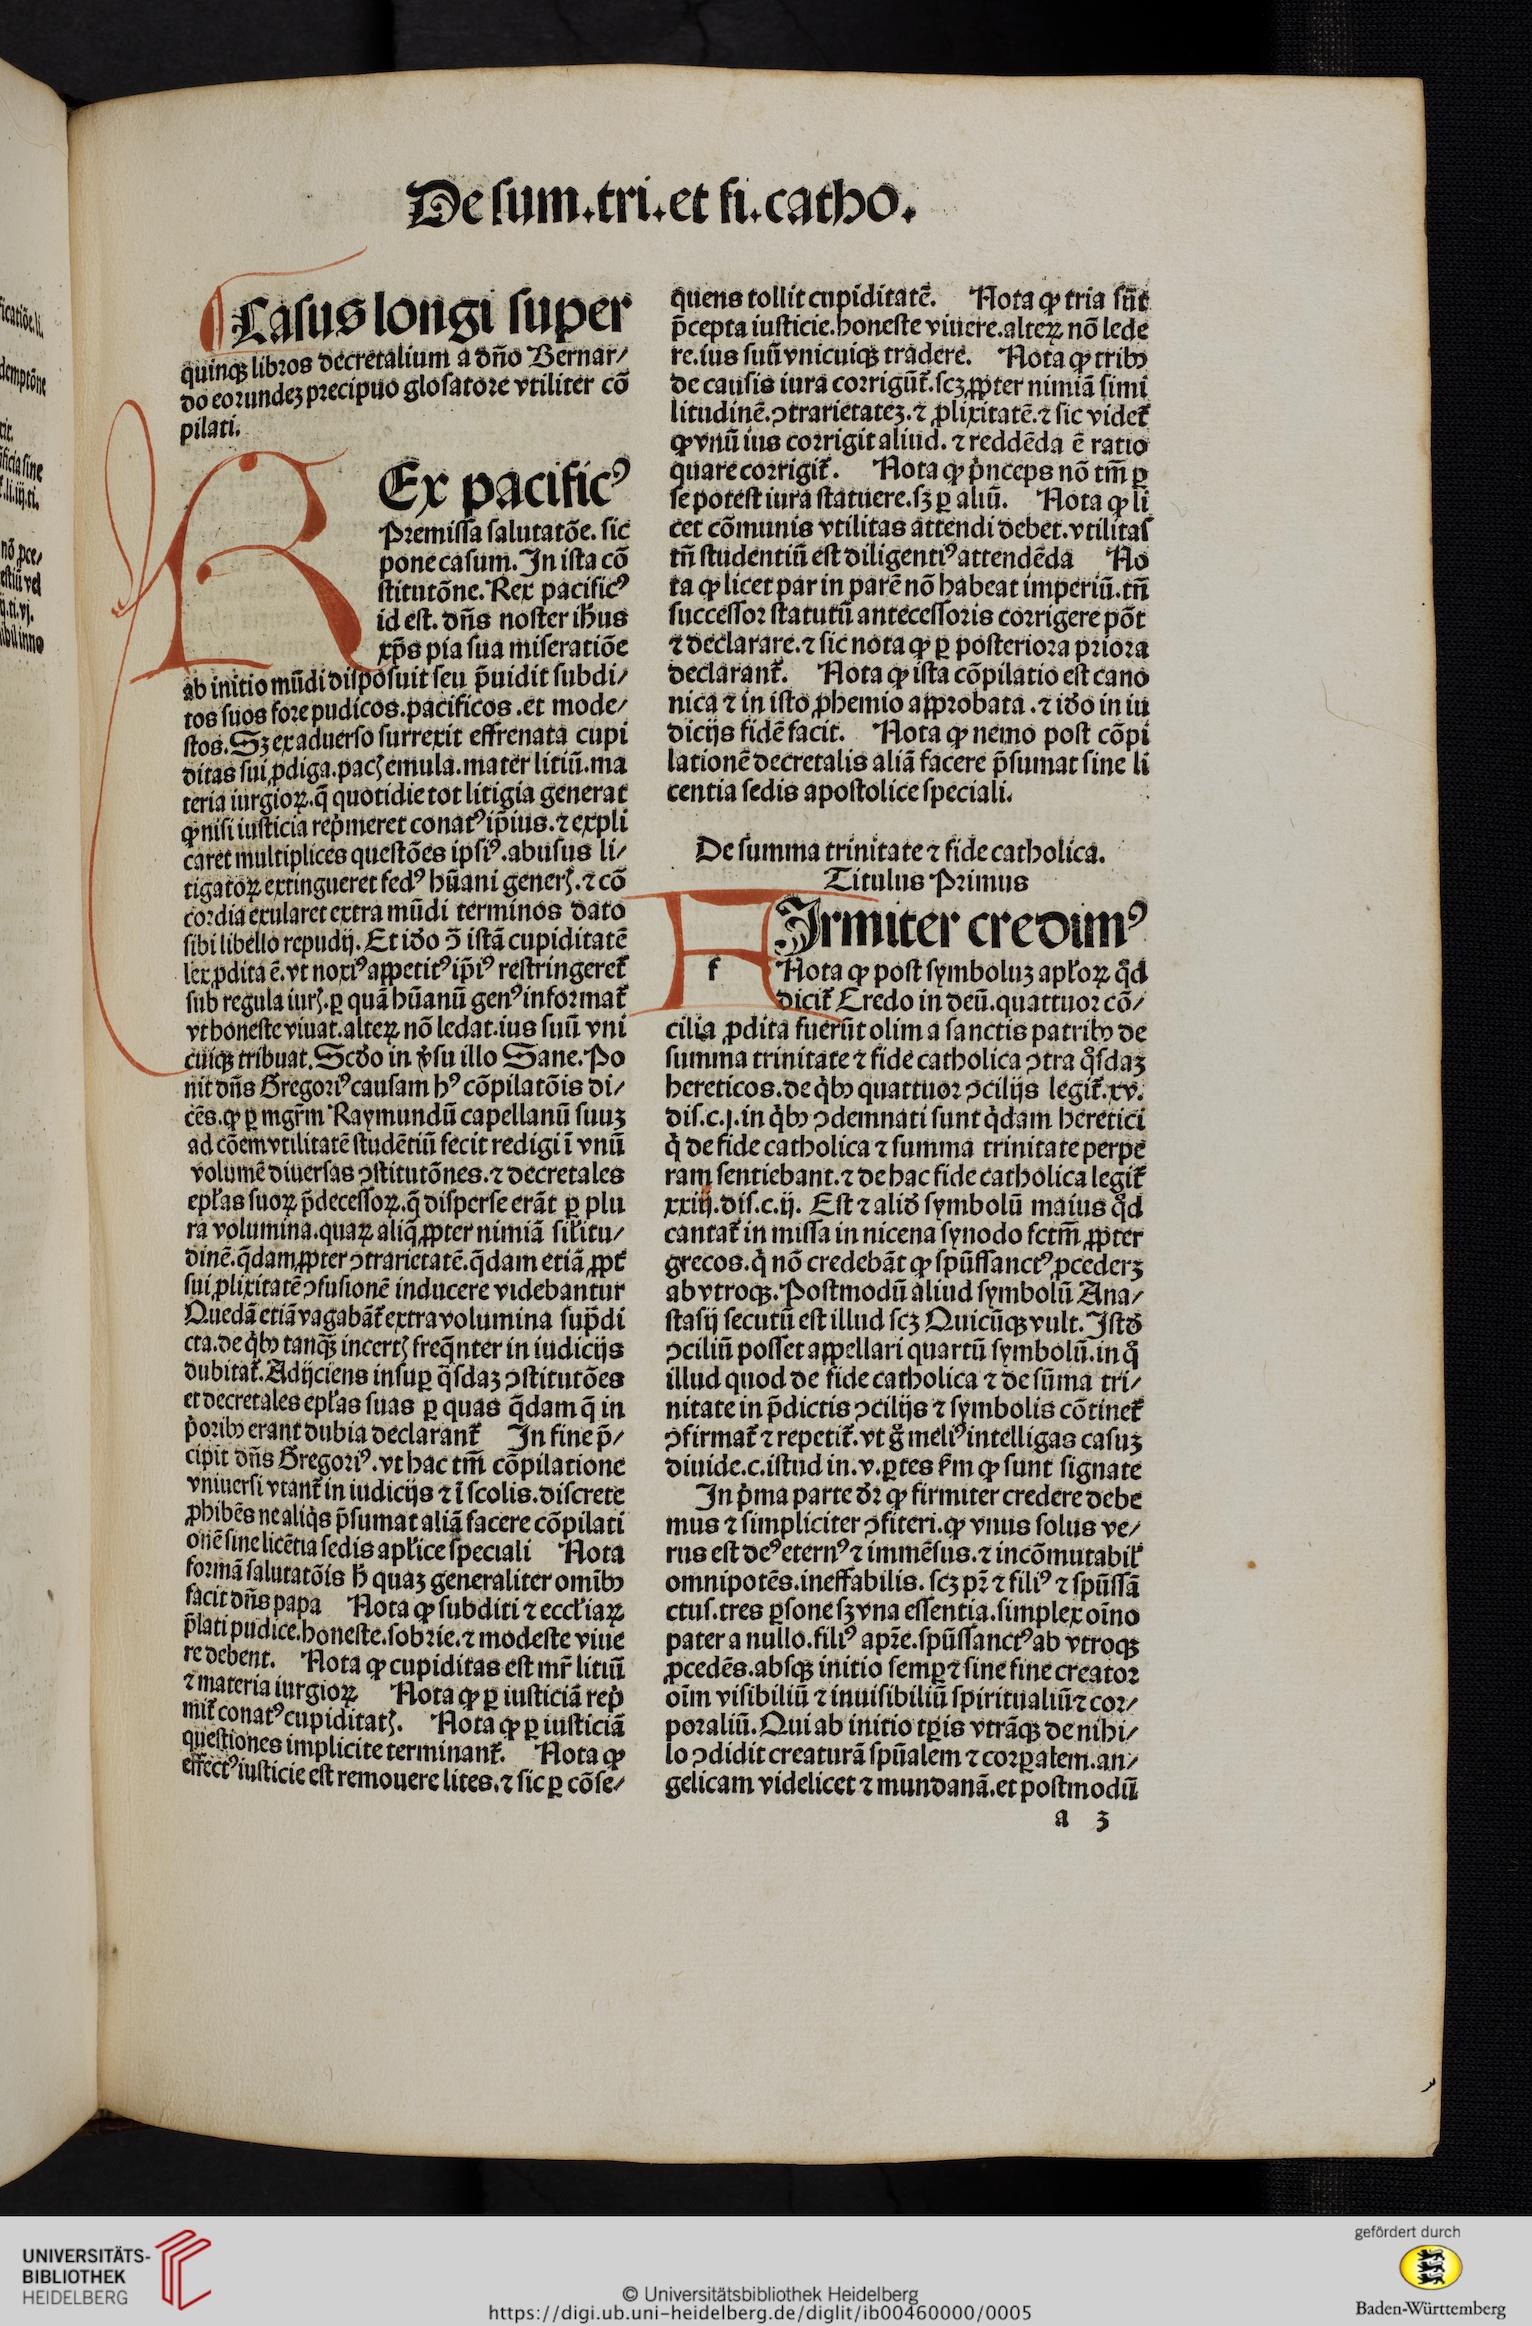 De sum.tri.et fi.catho.
Casus longi super
quinqꝫ libros decretalium a dño Bernar/
do eorundeꝫ precipuo glosatore vtiliter cõ
pilati.
REx pacificꝰ
Premissa salutatõe. sic
pone casum. In ista cõ
stitutõne. Rex pacificꝰ
id est. dñs noster ihus
xp̃s pia sua miseratiõe
ab initio mũdi disposuit seu p̃uidit subdi/
tos suos fore pudicos.pacificos.et mode/
stos. Sꝫ ex aduerso surrexit effrenata cupi
ditas sui ꝓdiga.pacꝭ emula.mater litiũ.ma
teria iurgioꝝ.q̃ quotidie tot litigia generat
ꝙ nisi iusticia rep̍meret conatꝰ ip̃ius.⁊ expli
caret multiplices questões ipsiꝰ.abusus li/
tigatoꝝ extingueret fedꝰ hũani generꝭ.⁊ cõ
cordia exularet extra mũdi terminos dato
sibi libello repudij. Et iđo ꝯ̃ istã cupiditatẽ
lex ꝓdita ẽ.vt noxiꝰ appetitꝰ ip̃iꝰ restringeret᷑
sub regula iurꝭ.ꝑ quã hũanũ genꝰ informat᷑
vt honeste viuat.alteꝝ nõ ledat.ius suũ vni
cuiqꝫ tribuat. Scđo in v̾su illo Sane. Po
nit dñs Gregoriꝰ causam hꝰ cõpilatõis di/
cẽs.ꝙ ꝑ mgr̃m Raymundũ capellanũ suuꝫ
ad cõem vtilitatẽ studẽtiũ fecit redigi ĩ vnũ
volumẽ diuersas ꝯstitutõnes.⁊ decretales
epłas suoꝝ p̃decessoꝝ.q̃ disperse erãt ꝑ plu
ra volumina.quaꝝ aliq̃ ꝓpter nimiã siłitu/
dinẽ.q̃dam ꝓpter ꝯtrarietatẽ.q̃dam etiã ꝓpt̾
sui ꝓlixitatẽ ꝯfusionẽ inducere videbantur
Quedã etiã vagabãt᷑ extra volumina sup̃di
cta.de q̍bꝰ tanq̃ꝫ incertꝭ freq̃nter in iudicijs
dubitat᷑. Adijciens insuꝑ q̃sdaꝫ ꝯstitutões
et decretales epłas suas ꝑ quas q̃dam q̃ in
p̍oribꝰ erant dubia declarant᷑ In fine p̃/
cipit dñs Gregoriꝰ.vt hac tm̃ cõpilatione
vniuersi vtant᷑ in iudicijs ⁊ ĩ scolis.discrete
ꝓhibẽs ne aliq̍s p̃sumat aliã facere cõpilati
onẽ sine licẽtia sedis apłice speciali Nota
formã salutatõis h̃ quaꝫ generaliter omĩbꝰ
facit dñs papa Nota ꝙ subditi ⁊ eccłiaꝝ
p̃lati pudice.honeste.sobrie.⁊ modeste viue
re debent. Nota ꝙ cupiditas est mr̃ litiũ
⁊ materia iurgioꝝ Nota ꝙ ꝑ iusticiã rep̍
mit᷑ conatꝰ cupiditatꝭ. Nota ꝙ ꝑ iusticiã
questiones implicite terminant᷑. Nota ꝙ
effectꝰ iusticie est remouere lites.⁊ sic ꝑ cõse/
quens tollit cupiditatẽ. Nota ꝙ tria sũt
p̃cepta iusticie.honeste viuere.alteꝝ nõ lede
re.ius suũ vnicuiqꝫ tradere. Nota ꝙ tribꝰ
de causis iura corrigũt᷑.scꝫ ꝓpter nimiã simi
litudinẽ.ꝯtrarietateꝫ.⁊ ꝓlixitatẽ.⁊ sic videt᷑
ꝙ vnũ ius corrigit aliud. ⁊ reddẽda ẽ ratio
quare corrigit᷑. Nota ꝙ p̍nceps nõ tm̃ ꝑ
se potest iura statuere.sꝫ ꝑ aliũ. Nota ꝙ li
cet cõmunis vtilitas attendi debet.vtilitas
tñ studentiũ est diligentiꝰ attendẽda No
ta ꝙ licet par in parẽ nõ habeat imperiũ.tñ
successor statutũ antecessoris corrigere põt
⁊ declarare.⁊ sic nota ꝙ ꝑ posteriora priora
declarant᷑. Nota ꝙ ista cõpilatio est cano
nica ⁊ in isto ꝓhemio approbata.⁊ iđo in iu
dicijs fidẽ facit. Nota ꝙ nemo post cõpi
lationẽ decretalis aliã facere p̃sumat sine li
centia sedis apostolice speciali.
De summa trinitate ⁊ fide catholica.
Titulus Primus
FIrmiter credimꝰ
f
Nota ꝙ post symboluꝫ apłoꝝ qđ
dicit᷑ Credo in deũ.quattuor cõ/
cilia ꝓdita fuerũt olim a sanctis patribꝰ de
summa trinitate ⁊ fide catholica ꝯtra q̊sdaꝫ
hereticos.de q̍bꝰ quattuor ꝯcilijs legit᷑.xv.
dis.c.j.in q̍bꝰ ꝯdemnati sunt q̍dam heretici
q̍ de fide catholica ⁊ summa trinitate perpe
ram sentiebant.⁊ de hac fide catholica legit᷑
xxiij.dis.c.ij. Est ⁊ aliđ symbolũ maius qđ
cantat᷑ in missa in nicena synodo fctm̃ ꝓpter
grecos.q̍ nõ credebãt ꝙ spũssanctꝰ ꝓcederꝫ
ab vtroqꝫ. Postmodũ aliud symbolũ Ana/
stasij secutũ est illud scꝫ Quicũqꝫ vult. Istđ
ꝯciliũ posset appellari quartũ symbolũ.in q̊
illud quod de fide catholica ⁊ de sũma tri/
nitate in p̃dictis ꝯcilijs ⁊ symbolis cõtinet᷑
ꝯfirmat᷑ ⁊ repetit᷑.vt g̊ meliꝰ intelligas casuꝫ
diuide.c.istud in.v.ꝑtes ẜm ꝙ sunt signate
In p̍ma parte đr ꝙ firmiter credere debe
mus ⁊ simpliciter ꝯfiteri.ꝙ vnus solus ve/
rus est deꝰ eternꝰ ⁊ immẽsus.⁊ incõmutabił
omnipotẽs.ineffabilis. scꝫ pr̃ ⁊ filiꝰ ⁊ spũssã
ctus.tres ꝑsone sꝫ vna essentia.simplex oĩno
pater a nullo.filiꝰ a pr̃e.spũssanctꝰ ab vtroqꝫ
ꝓcedẽs.absqꝫ initio semꝑ ⁊ sine fine creator
oĩm visibiliũ ⁊ inuisibiliũ spiritualiũ ⁊ cor/
poraliũ. Qui ab initio tꝑis vtrãqꝫ de nihi/
lo ꝯdidit creaturã spũalem ⁊ corꝑalem.an/
gelicam videlicet ⁊ mundanã.et postmodũ
a 3
UNIVERSITÄTS-
BIBLIOTHEK
HEIDELBERG
© Universitätsbibliothek Heidelberg
https://digi.ub.uni-heidelberg.de/diglit/ib00460000/0005
gefördert durch
Baden-Württemberg